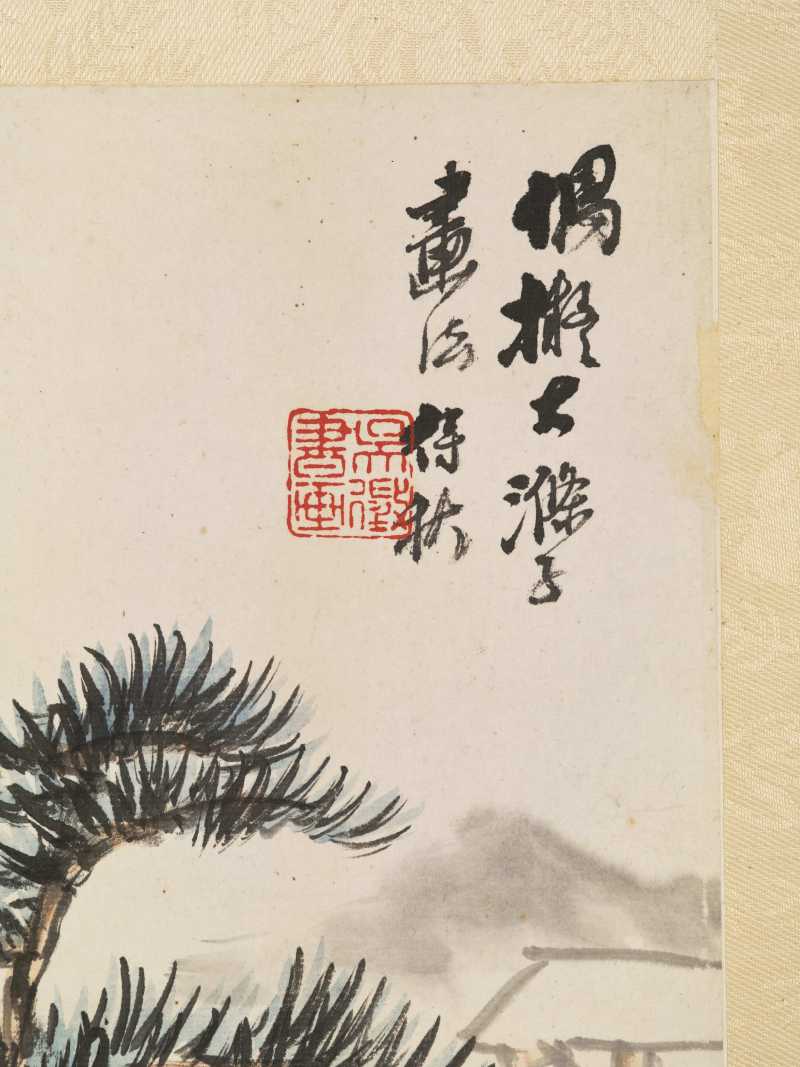 偶擬大滌子
畫法 待秋
吳徵
書畫